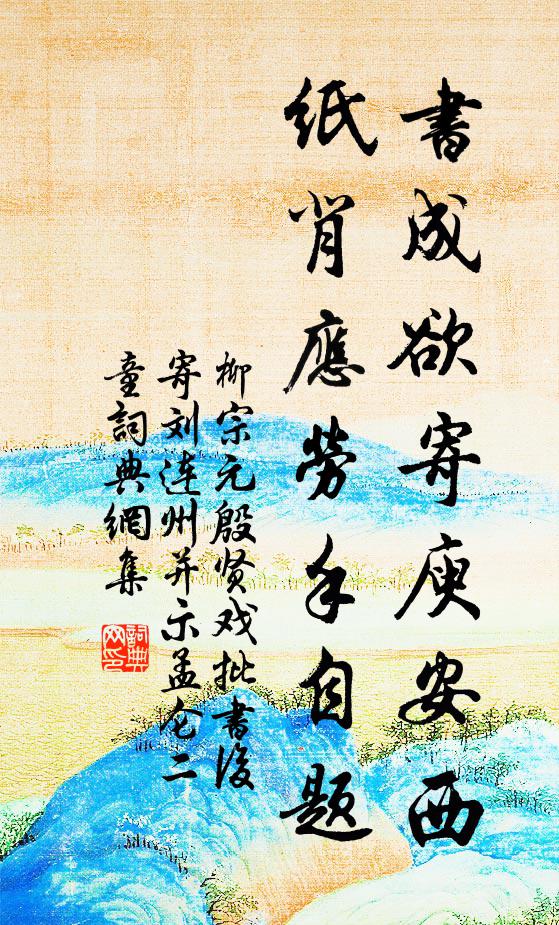 書成欲寄庾安西
紙背應勞手自題
柳宗元殷贤戏批書後
寄刘连州并示孟仑二
童詞典網集
詞典
网印